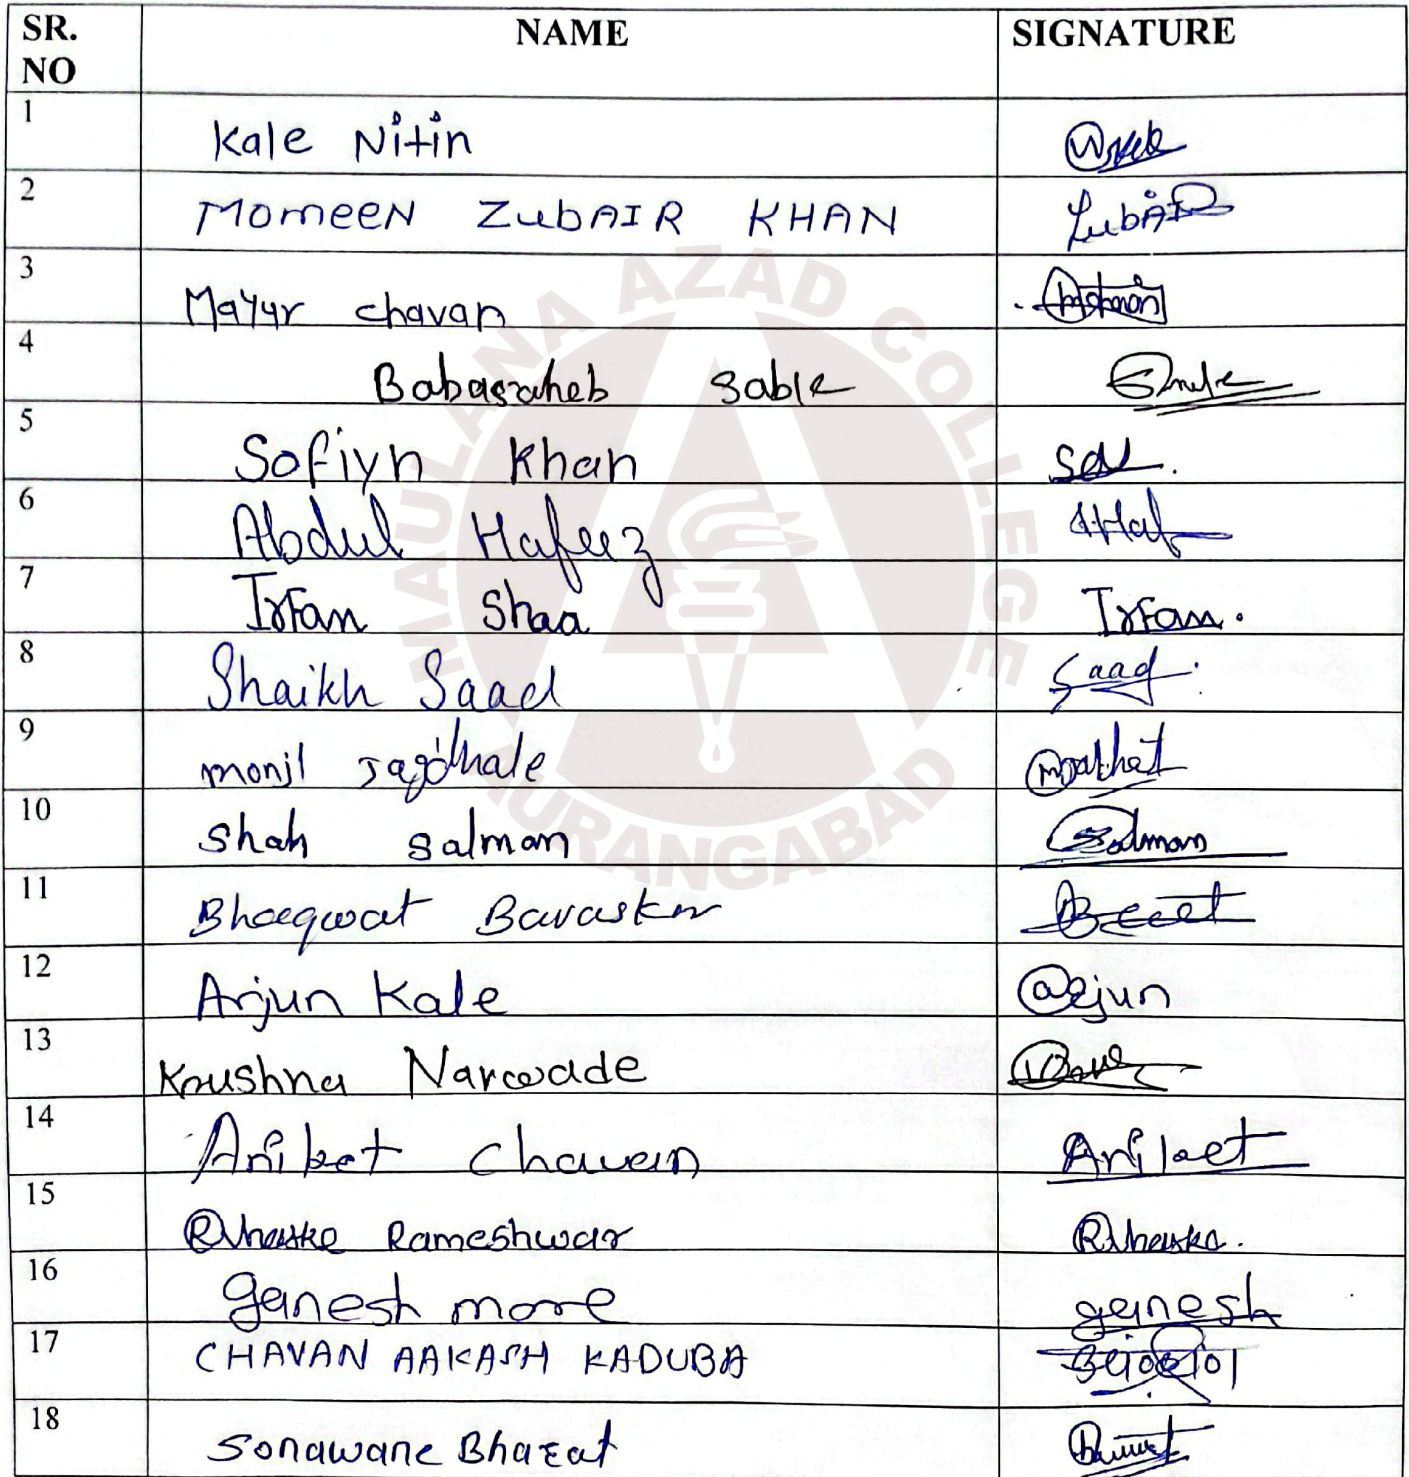 SR. NO NAME SIGNATURE
1 Kale Nitin
2 MomeeN ZubAIR KHAN ZubAIR
3 Mayur chavan
4 Babasaheb Sable
5 Sofiyn Khan
6 Abdul Hafeez AHaf
7 Irfan Shaa Irfan.
8 Shaikh Saad Saad
9 monjl Jagdhale
10 Shah Salman Salman
11 Bhagwat Bavaskr
12 Arjun Kale arjun
13 Krushna Narwade
14 Aniket Chavan Aniket
15 Rameshwar
16 ganesh more ganesh
17 CHAVAN AAKASH KADUBA
18 Sonawane Bharat
MAULANA AZAD COLLEGE
AURANGABAD